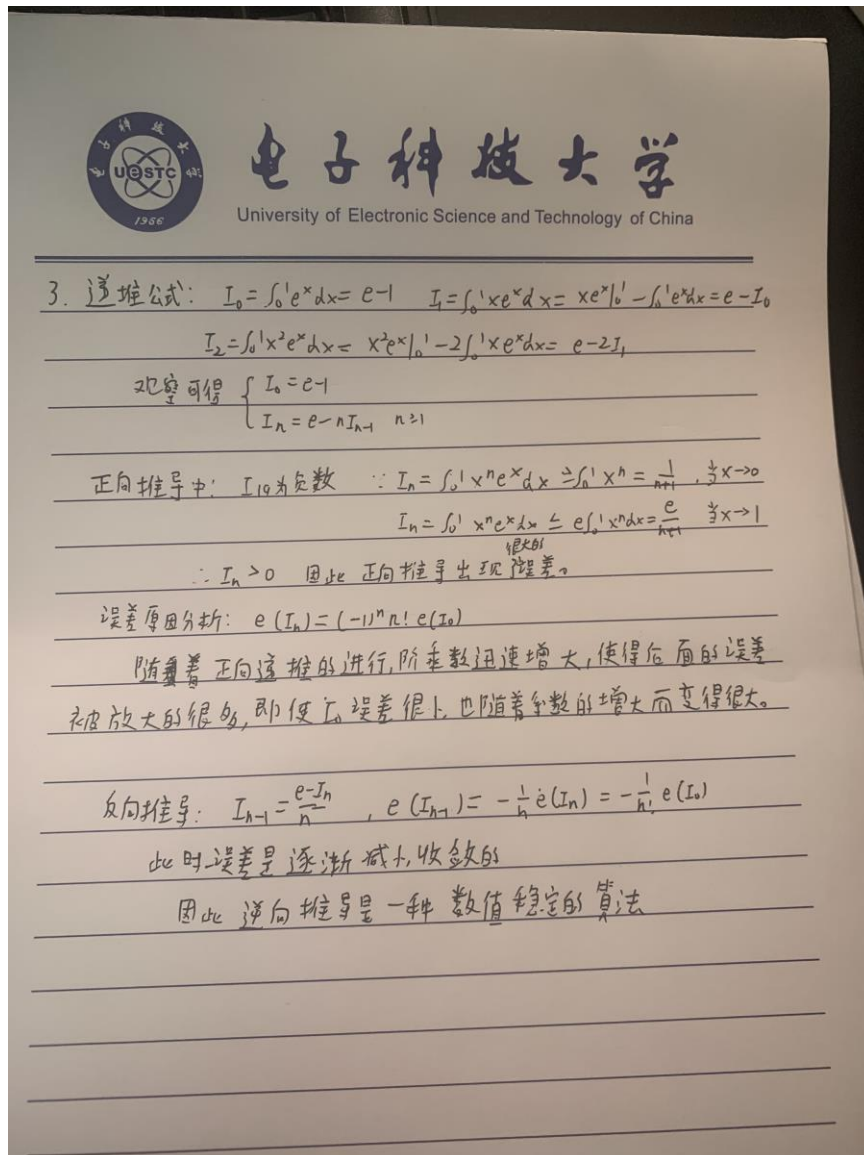 电子科技大学
UESTC
1956
电子科技大学
University of Electronic Science and Technology of China
3. 递推公式: I₀=∫₀¹eˣdx=e-1 I₁=∫₀¹xeˣdx=xeˣ|₀¹-∫₀¹eˣdx=e-I₀
I₂=∫₀¹x²eˣdx=x²eˣ|₀¹-2∫₀¹xeˣdx=e-2I₁
观察可得 { I₀=e-1
Iₙ=e-nIₙ₋₁ n≥1
正向推导中: I₁₉为负数 ∵ Iₙ=∫₀¹xⁿeˣdx≥∫₀¹xⁿ=1/(n+1), 当x→0
Iₙ=∫₀¹xⁿeˣdx≤e∫₀¹xⁿdx=e/(n+1) 当x→1
∴ Iₙ>0 因此正向推导出现很大的误差。
误差原因分析: e(Iₙ)=(-1)ⁿn!e(I₀)
随着正向递推的进行,阶乘数迅速增大,使得后面的误差
被放大的很多,即使I₀误差很小,也随着系数的增大而变得很大。
反向推导: Iₙ₋₁=(e-Iₙ)/n , e(Iₙ₋₁)=-1/n e(Iₙ)=-1/n! e(I₀)
此时误差是逐渐减小,收敛的
因此逆向推导是一种数值稳定的算法